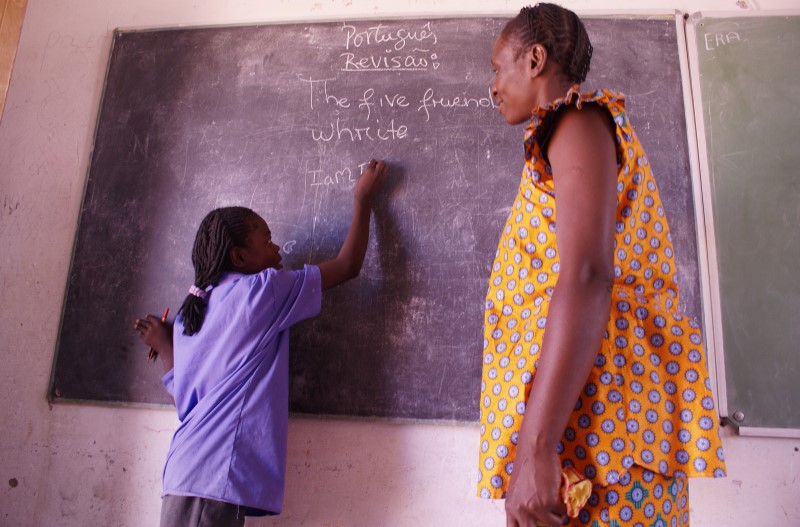 Português
Revisão:
The five fruend
whricte
I am
ERA